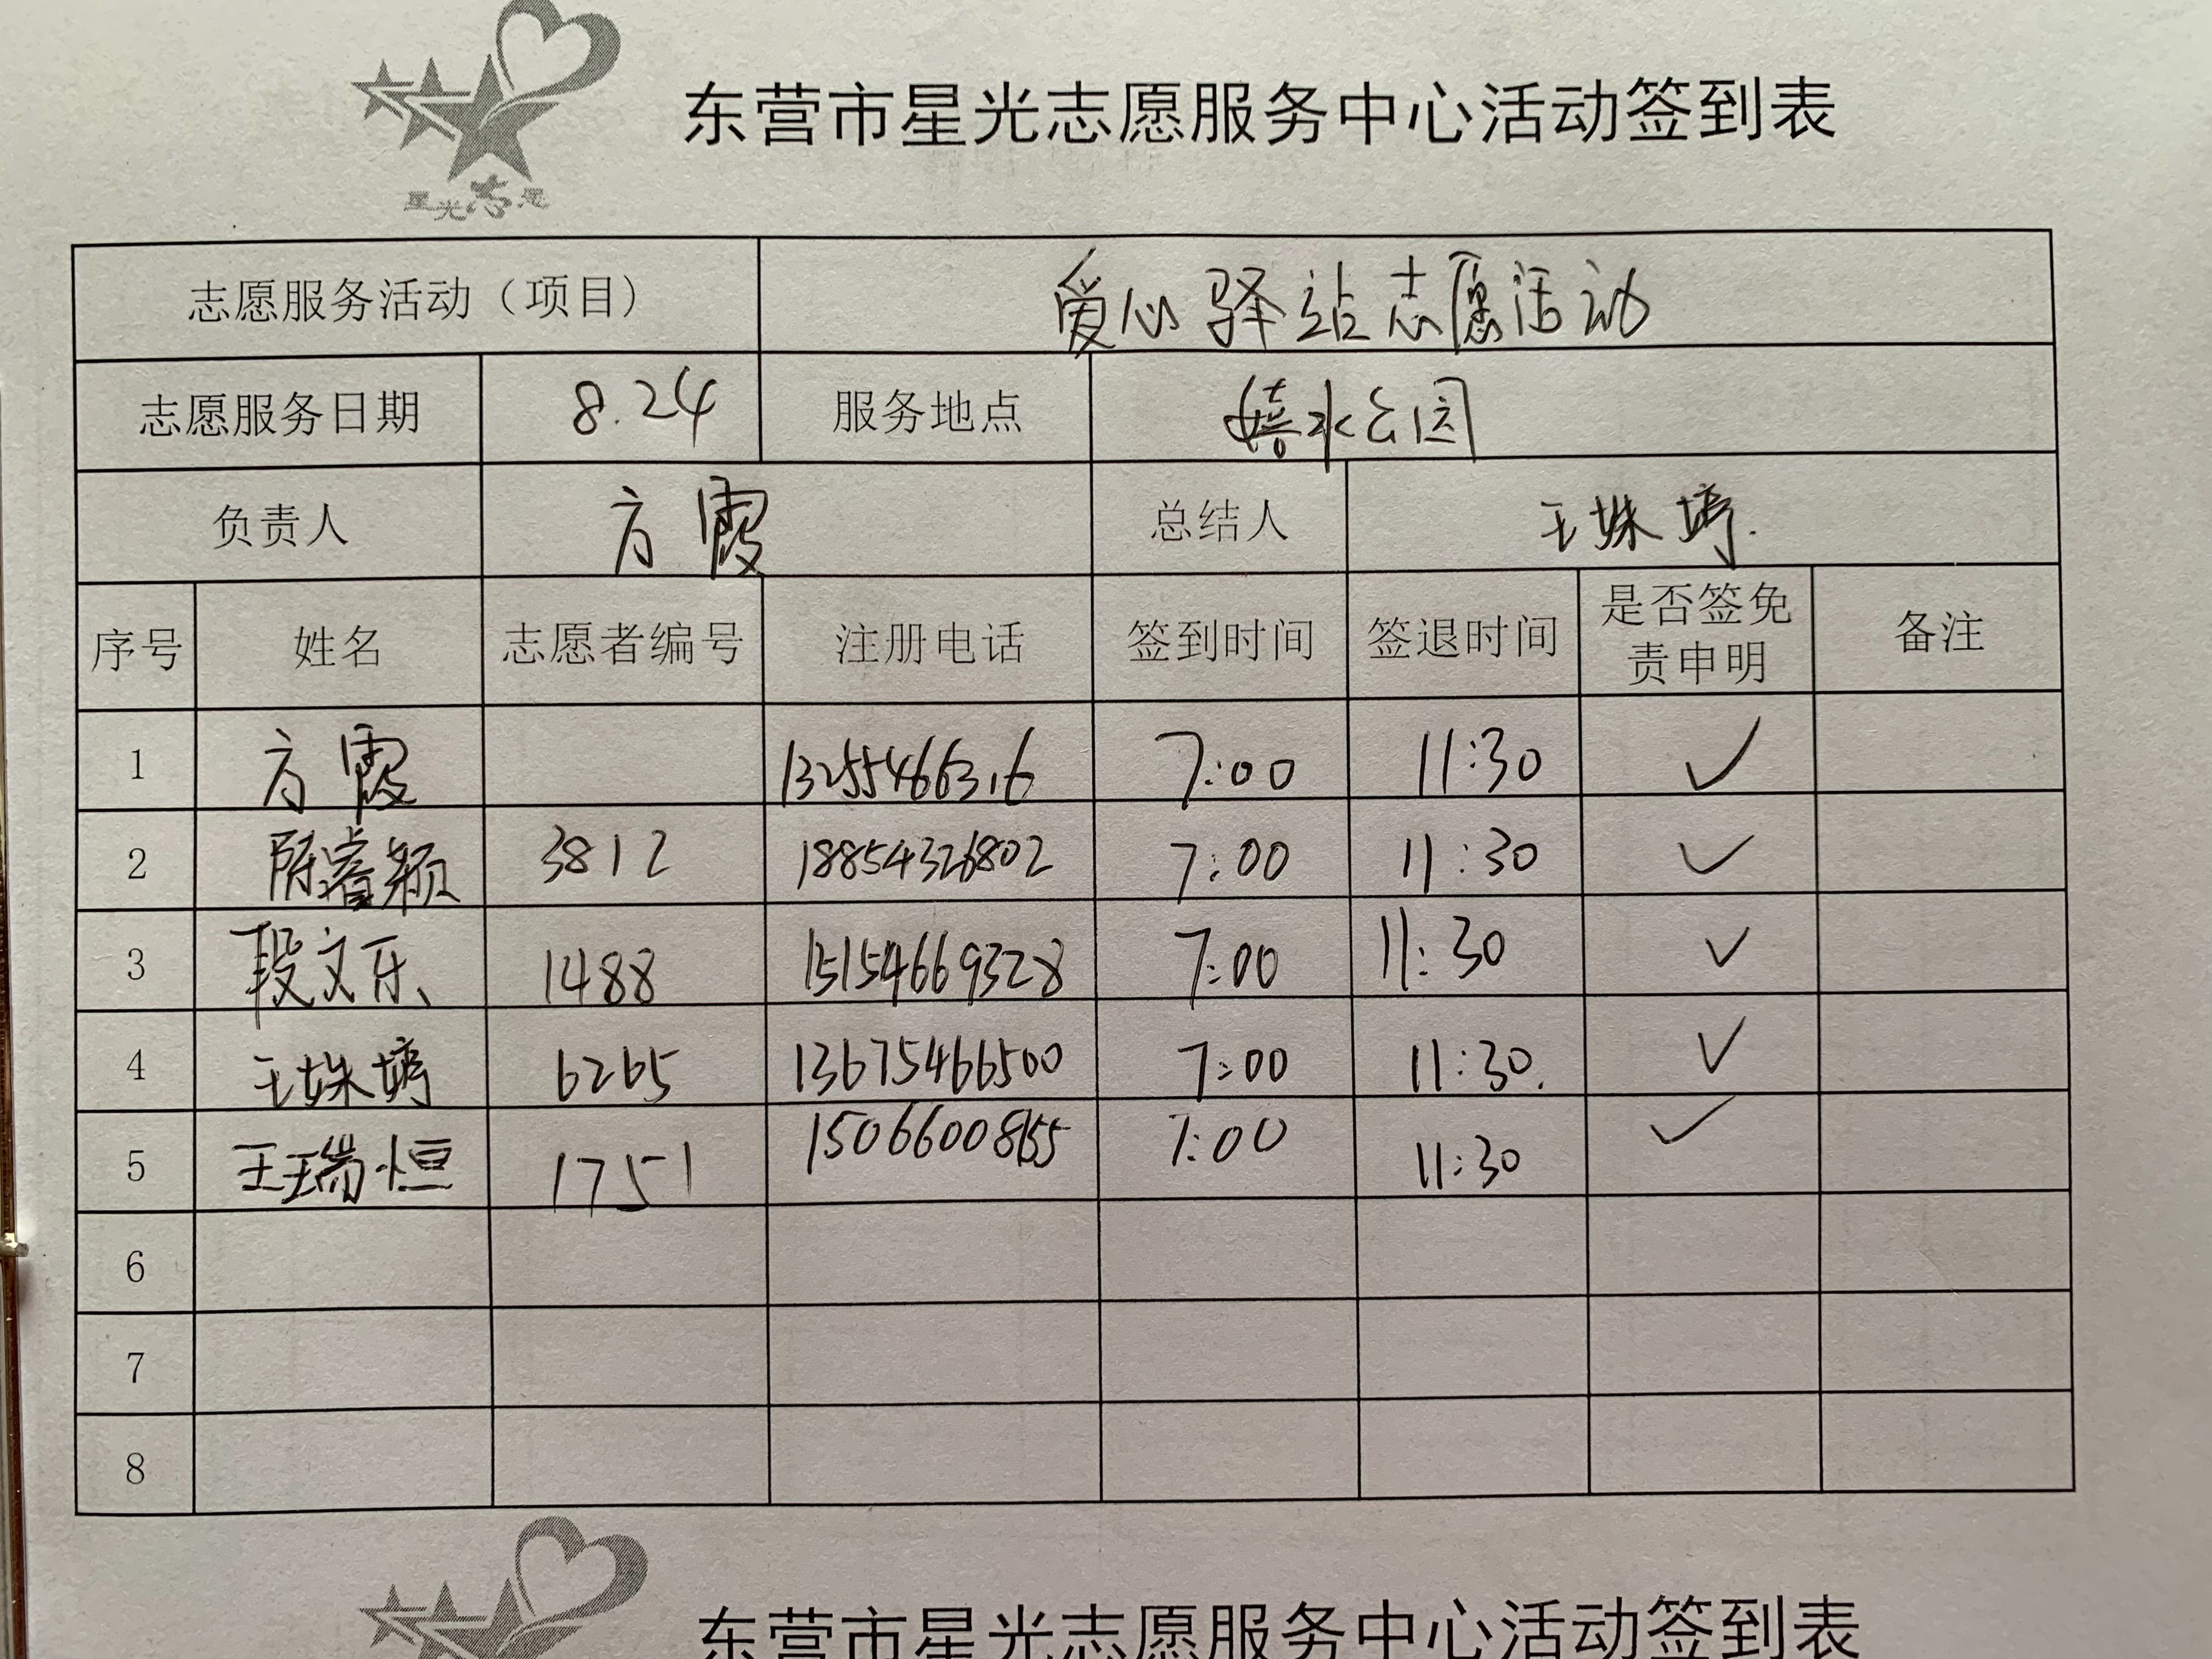 东营市星光志愿服务中心活动签到表
星光志愿
志愿服务活动（项目） 爱心驿站志愿活动
志愿服务日期 8.24 服务地点 嬉水公园
负责人 方霞 总结人 王姝婷.
序号 姓名 志愿者编号 注册电话 签到时间 签退时间 是否签免责申明 备注
1 方霞 13255466316 7:00 11:30 ✓
2 陈睿颖 3812 18854326802 7:00 11:30 ✓
3 段文乐 1488 15154669328 7:00 11:30 ✓
4 王姝婷 6265 13675466500 7:00 11:30. ✓
5 王瑞恒 1751 15066008155 7:00 11:30 ✓
6
7
8
东营市星光志愿服务中心活动签到表